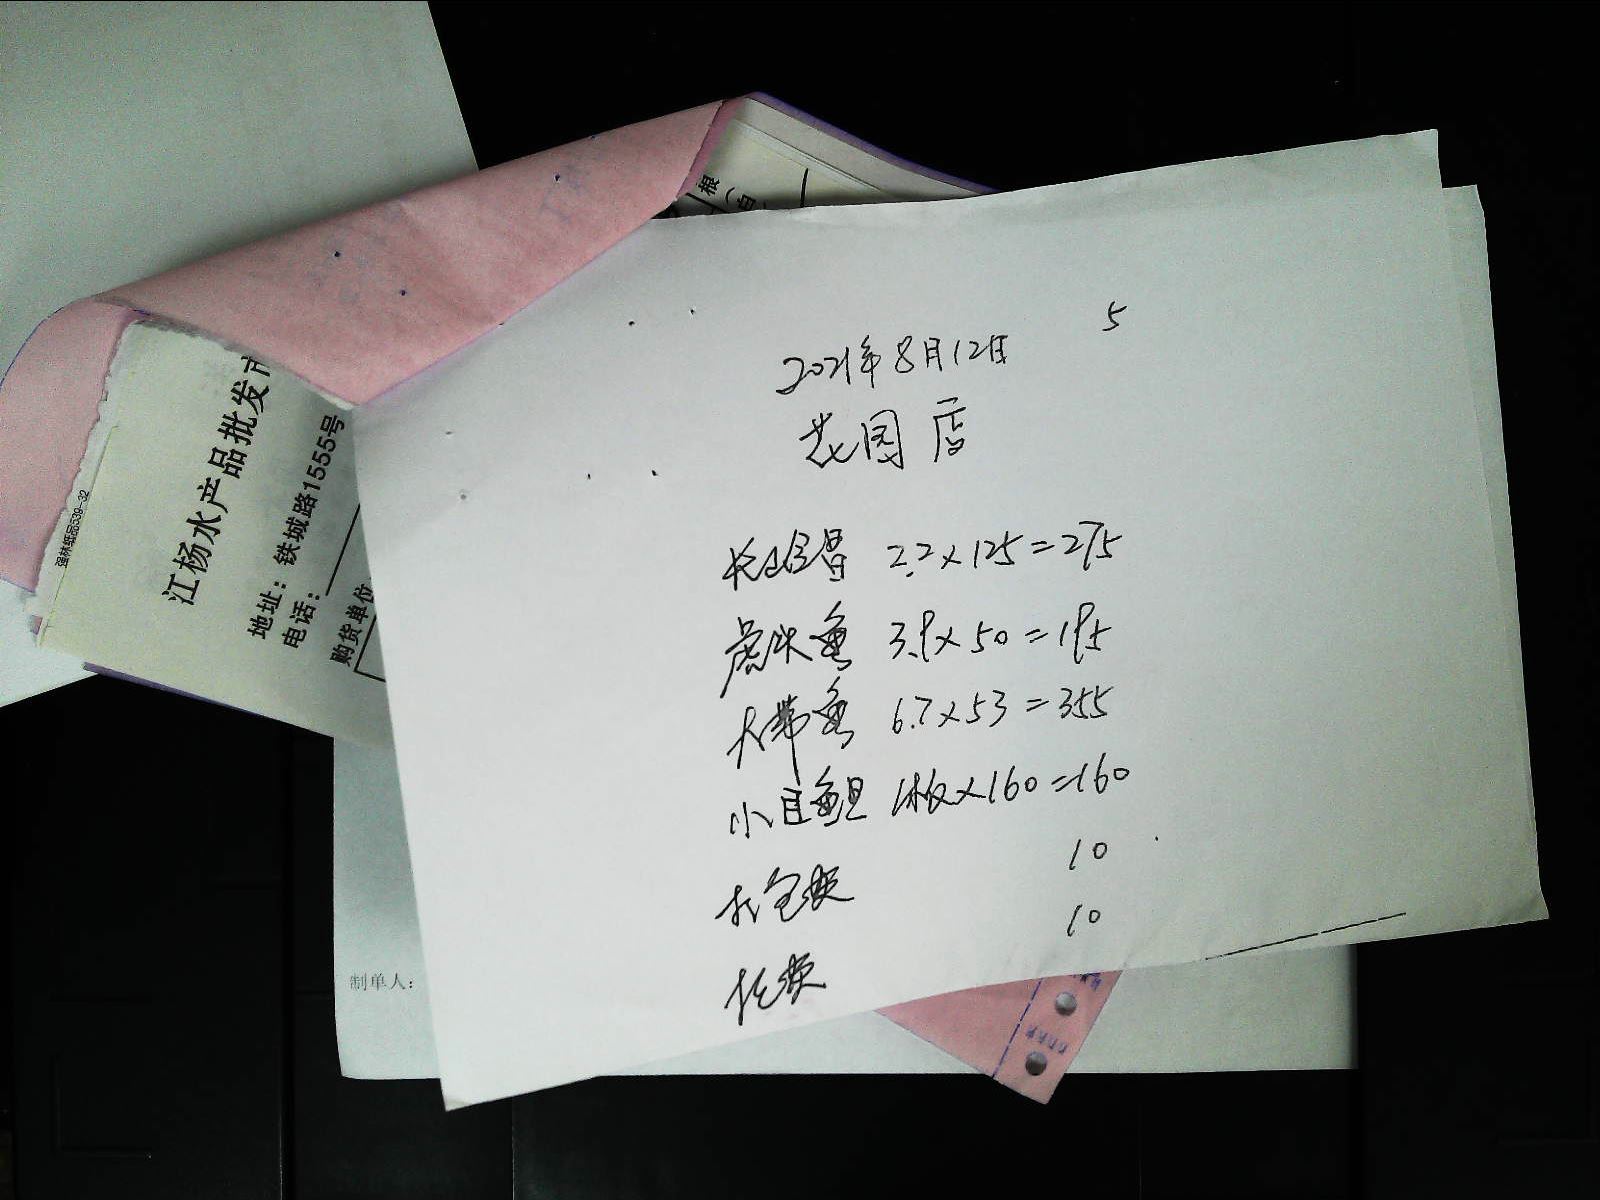 5
2021年8月12日
花园店
2.2×125=275
虎头鱼 3.9×50=195
大带鱼 6.7×53=355
小目鱼 1板×160=160
打包费 10
托费 10
江杨水产品批发市
地址：铁城路1555号
电话：
购货单位
强林纸品539-32
根（白
制单人：